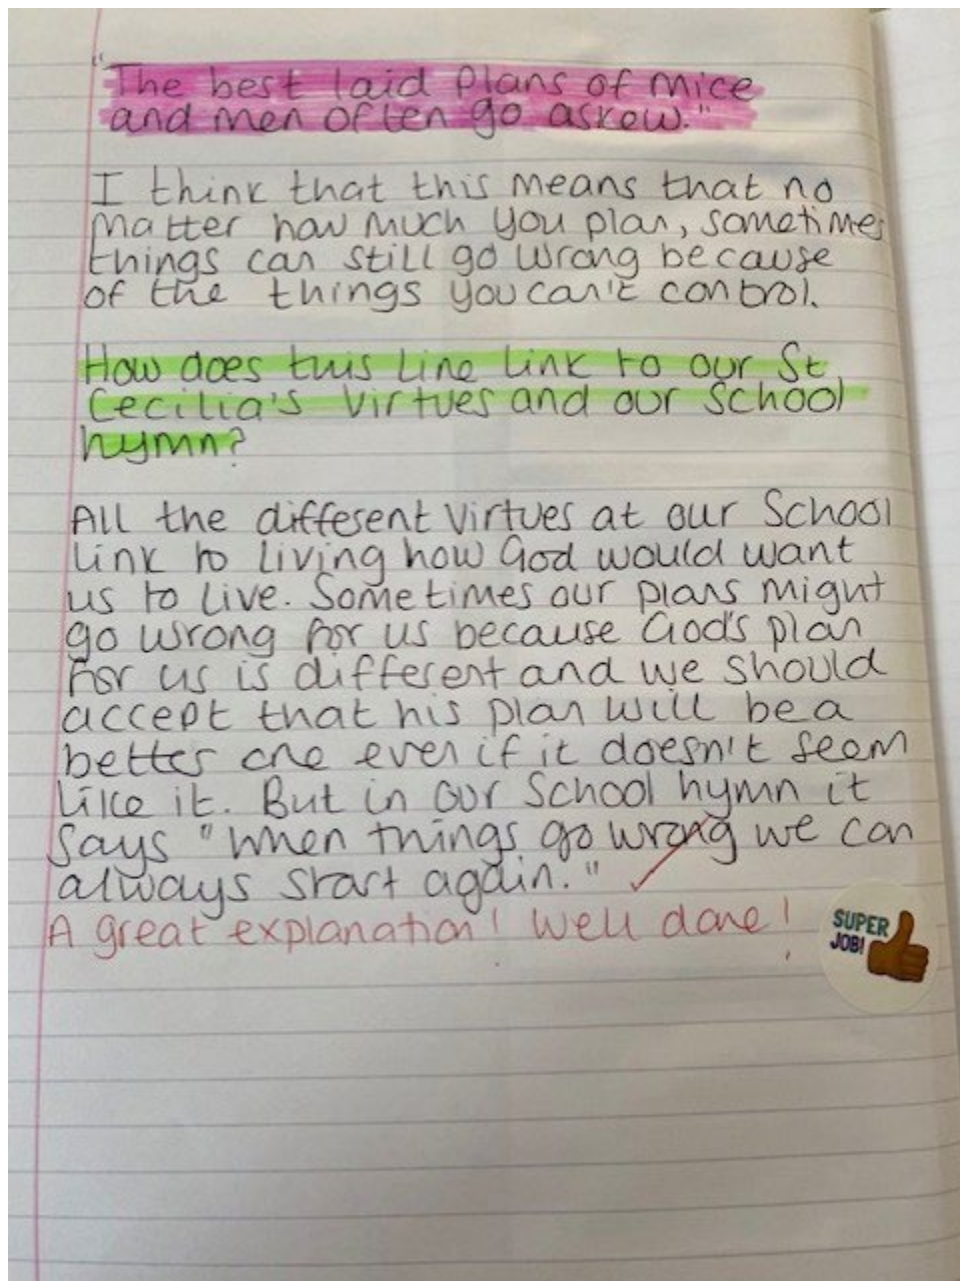 "The best laid plans of mice
and men often go askew."
I think that this means that no
matter how much you plan, sometimes
things can still go wrong because
of the things you can't control.
How does this line link to our St
Cecilia's virtues and our school
hymn?
All the different virtues at our School
link to living how God would want
us to live. Sometimes our plans might
go wrong for us because God's plan
for us is different and we should
accept that his plan will be a
better one even if it doesn't seem
like it. But in our School hymn it
says "when things go wrong we can
always start again."
A great explanation! Well done!
SUPER
JOB!